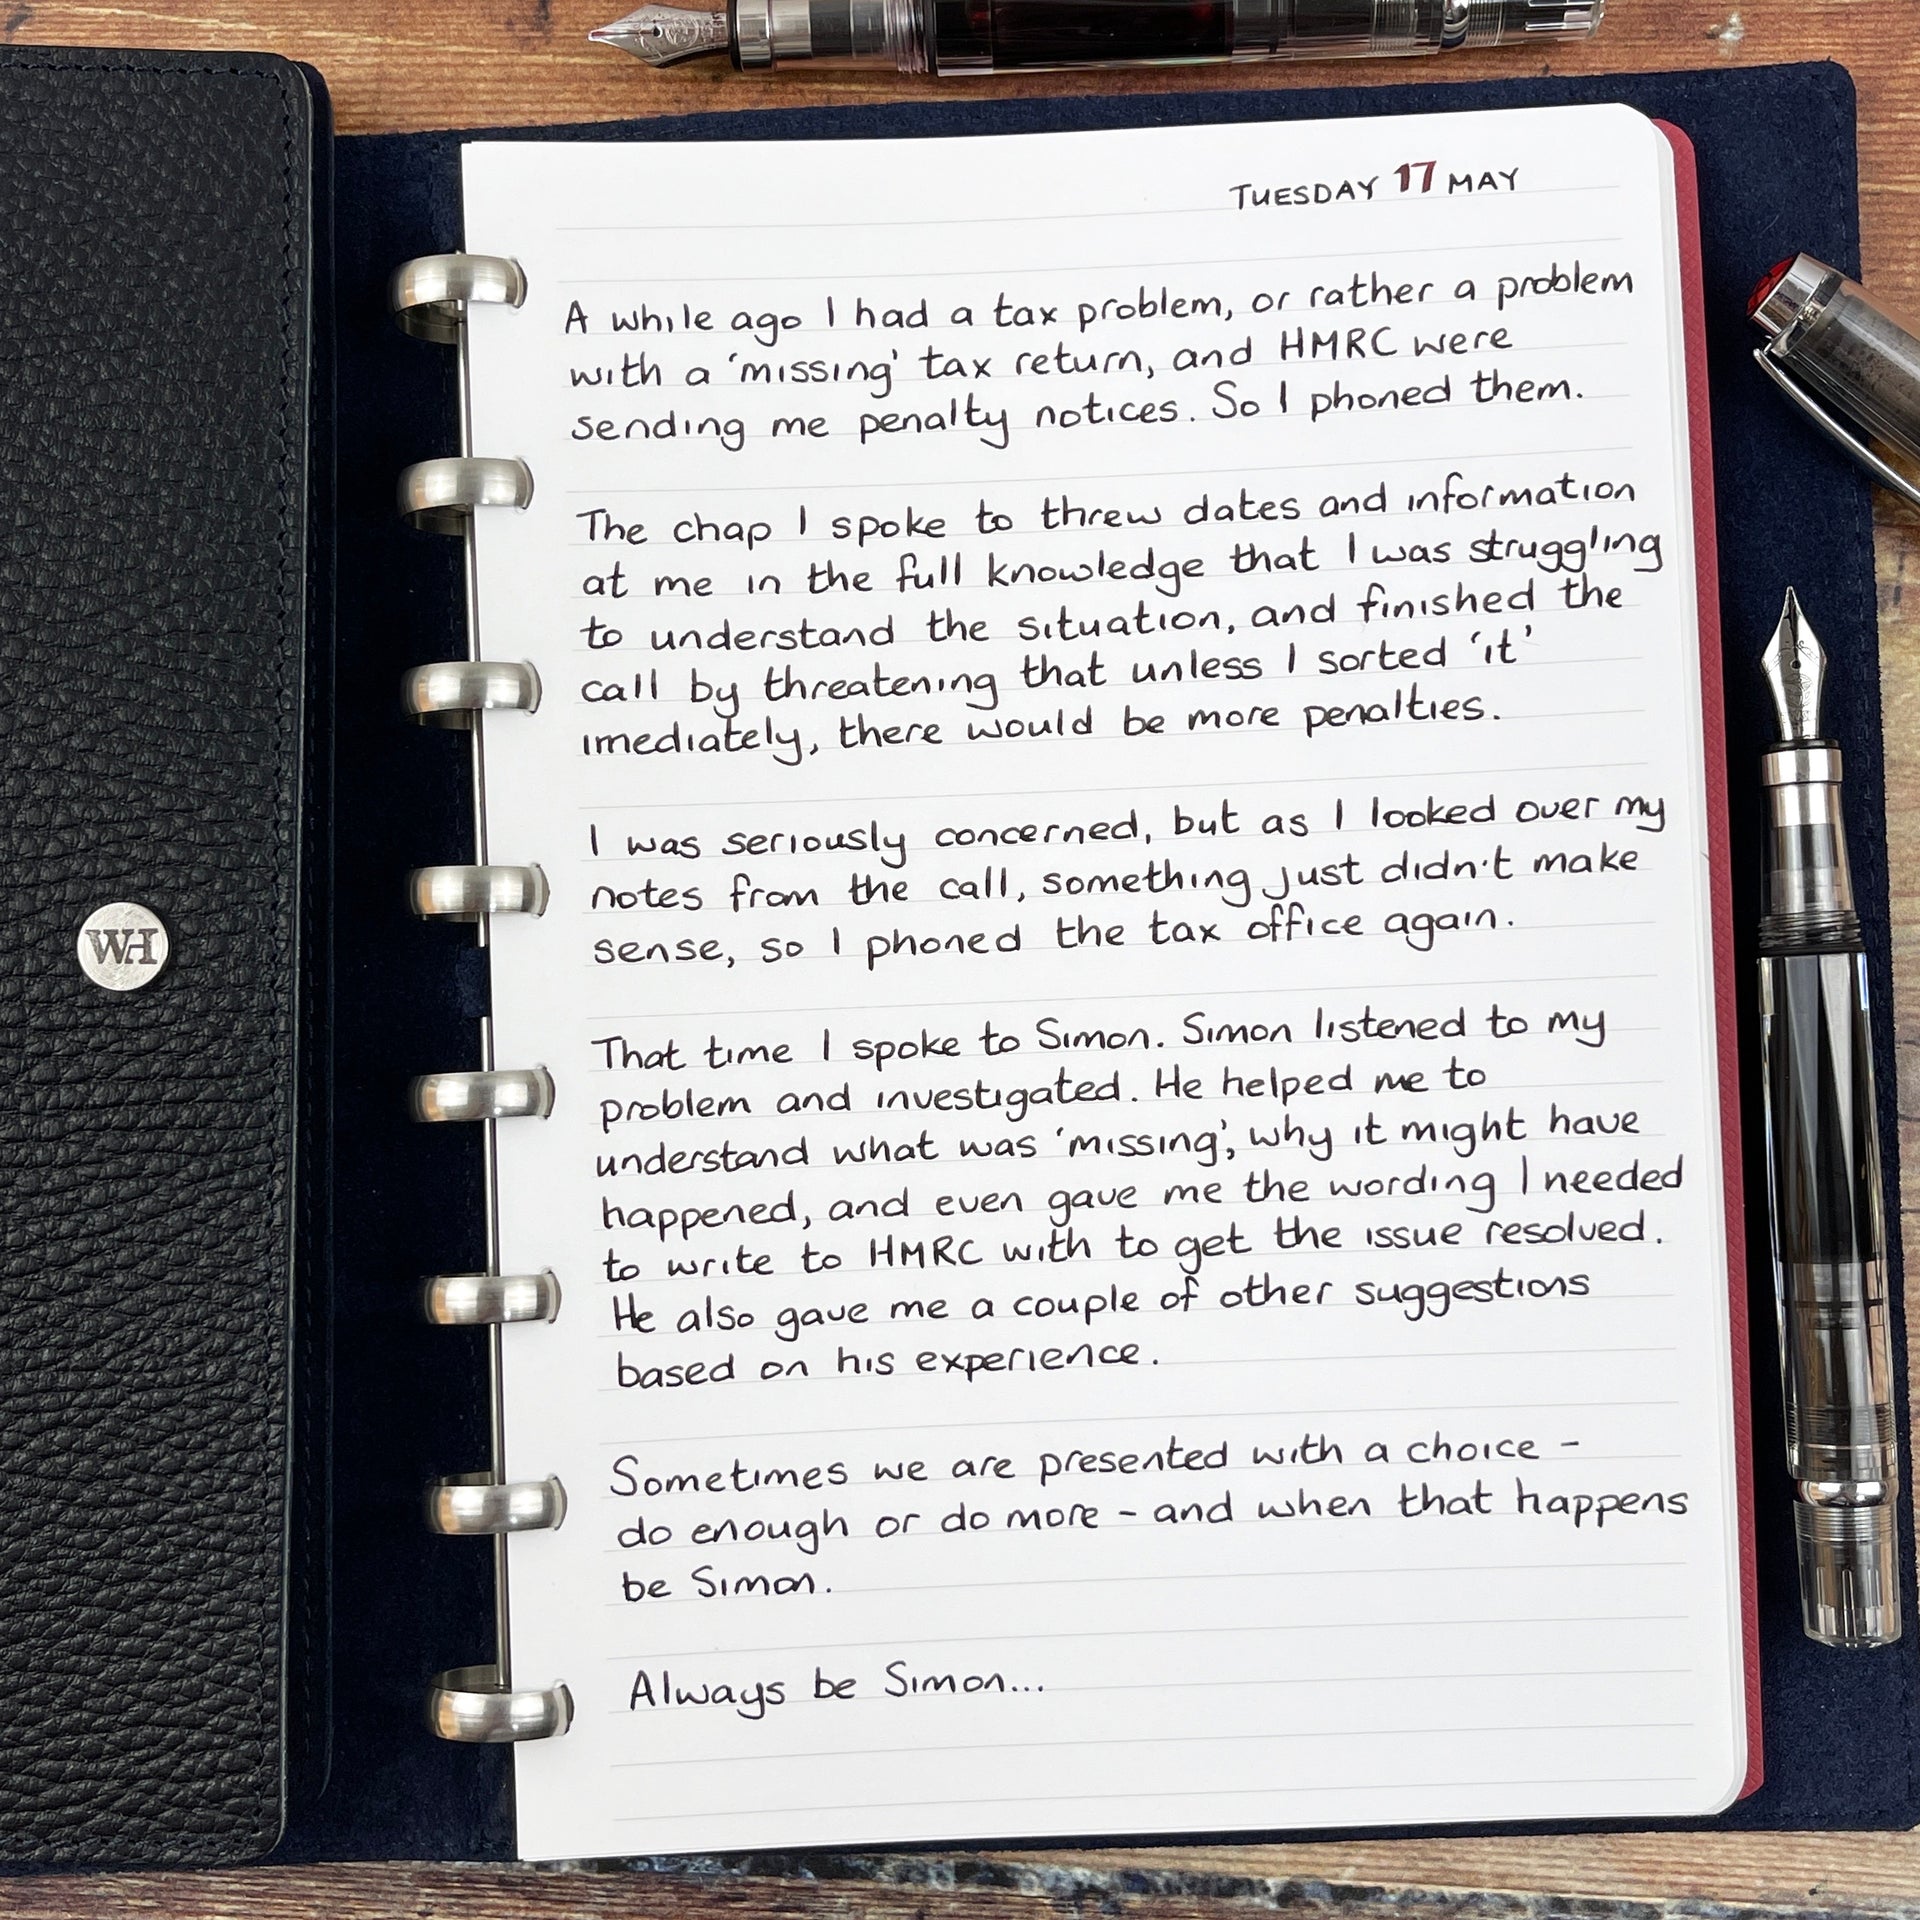 TUESDAY 17 MAY
A while ago I had a tax problem, or rather a problem
with a 'missing' tax return, and HMRC were
sending me penalty notices. So I phoned them.
The chap I spoke to threw dates and information
at me in the full knowledge that I was struggling
to understand the situation, and finished the
call by threatening that unless I sorted 'it'
imediately, there would be more penalties.
I was seriously concerned, but as I looked over my
notes from the call, something just didn't make
sense, so I phoned the tax office again.
That time I spoke to Simon. Simon listened to my
problem and investigated. He helped me to
understand what was 'missing', why it might have
happened, and even gave me the wording I needed
to write to HMRC with to get the issue resolved.
He also gave me a couple of other suggestions
based on his experience.
Sometimes we are presented with a choice -
do enough or do more - and when that happens
be Simon.
Always be Simon...
WH